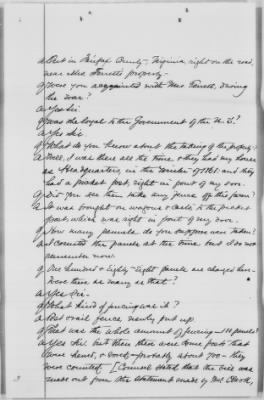 a But in Fairfax County, Virginia right on the road,
near Mrs Terretts property.
q Were you acquainted with Mrs. Terrett, during
the war?
a Yes Sir.
q Was she loyal to the Government of the U.S.?
a Yes Sir.
q What do you know about the taking of the property?
a Well, I was there all the time, & they had my house
as Headquarters, in the Winter of 1861. and they
had a picket post, right in front of my door.
q Did you see them take any fence off this farm?
a It was brought on wagons & carts, to the picket
post, which was right in front of my door.
q How many pannels do you suppose was taken?
a I counted the panels at the time, but I do not
remember now.
q One hundred & Eighty-Eight panels are charged here.
Were there as many as that?
a Yes Sir.
q What kind of fencing was it?
a Post & rail fence newly put up.
q That was the whole amount of fencing — panels?
a Yes Sir. but then there were some posts that
were hewed, & bored — probably about 700 — they
were counted. [Counsel stated that the bill was
made out from the statement made by Mr.